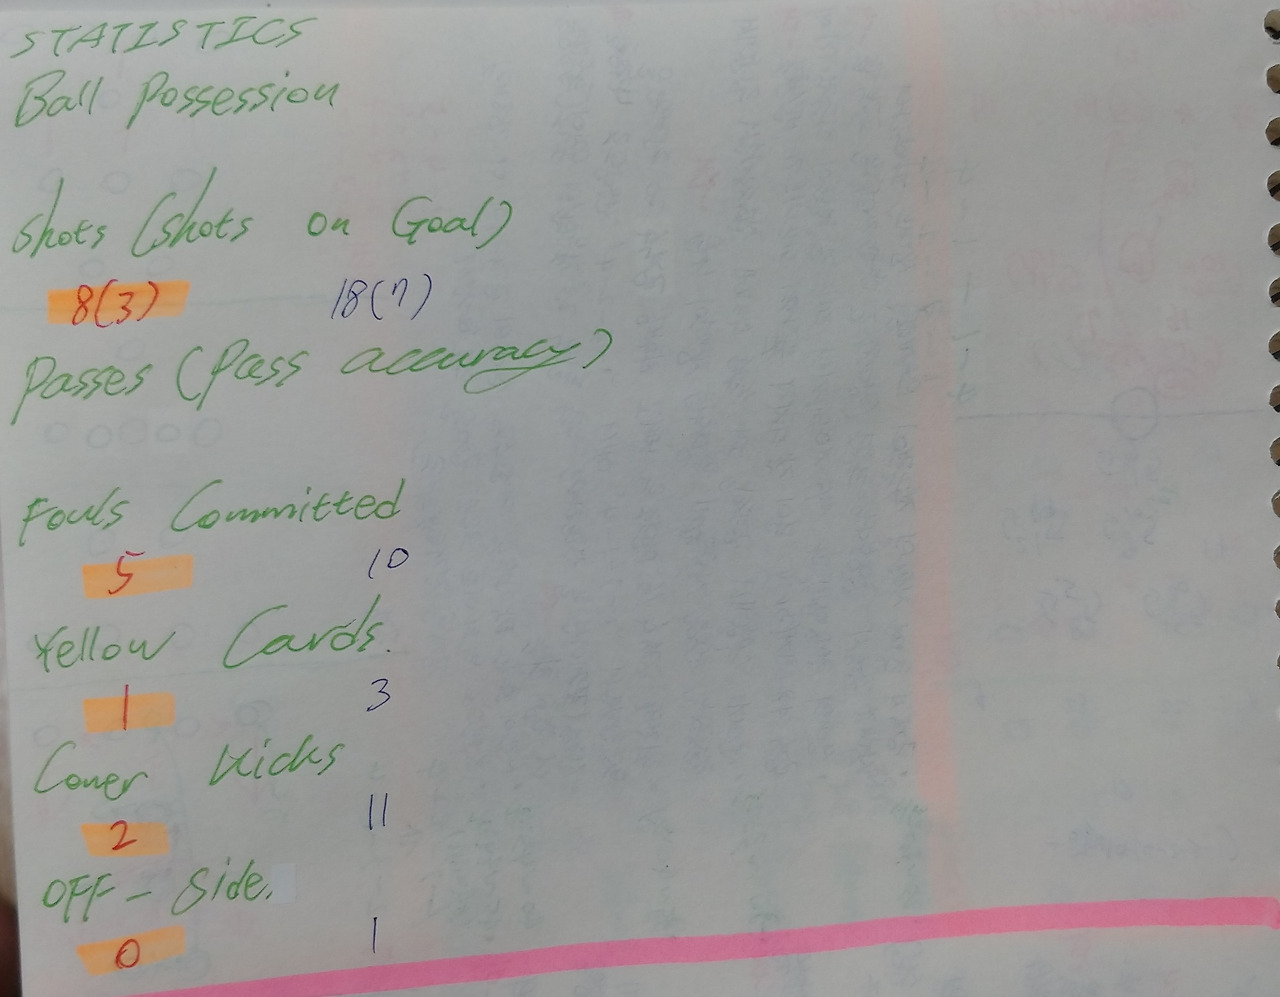 STATISTICS
Ball Possession
Shots (Shots on Goal)
8(3) 18(7)
Passes (Pass accuracy)
Fouls Committed
5 10
Yellow Cards.
1 3
Corner Kicks
2 11
OFF - Side.
0 1